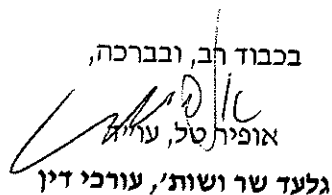 בכבוד רב, ובברכה,
אופיר טל, עו"ד
גלעד שר ושות', עורכי דין